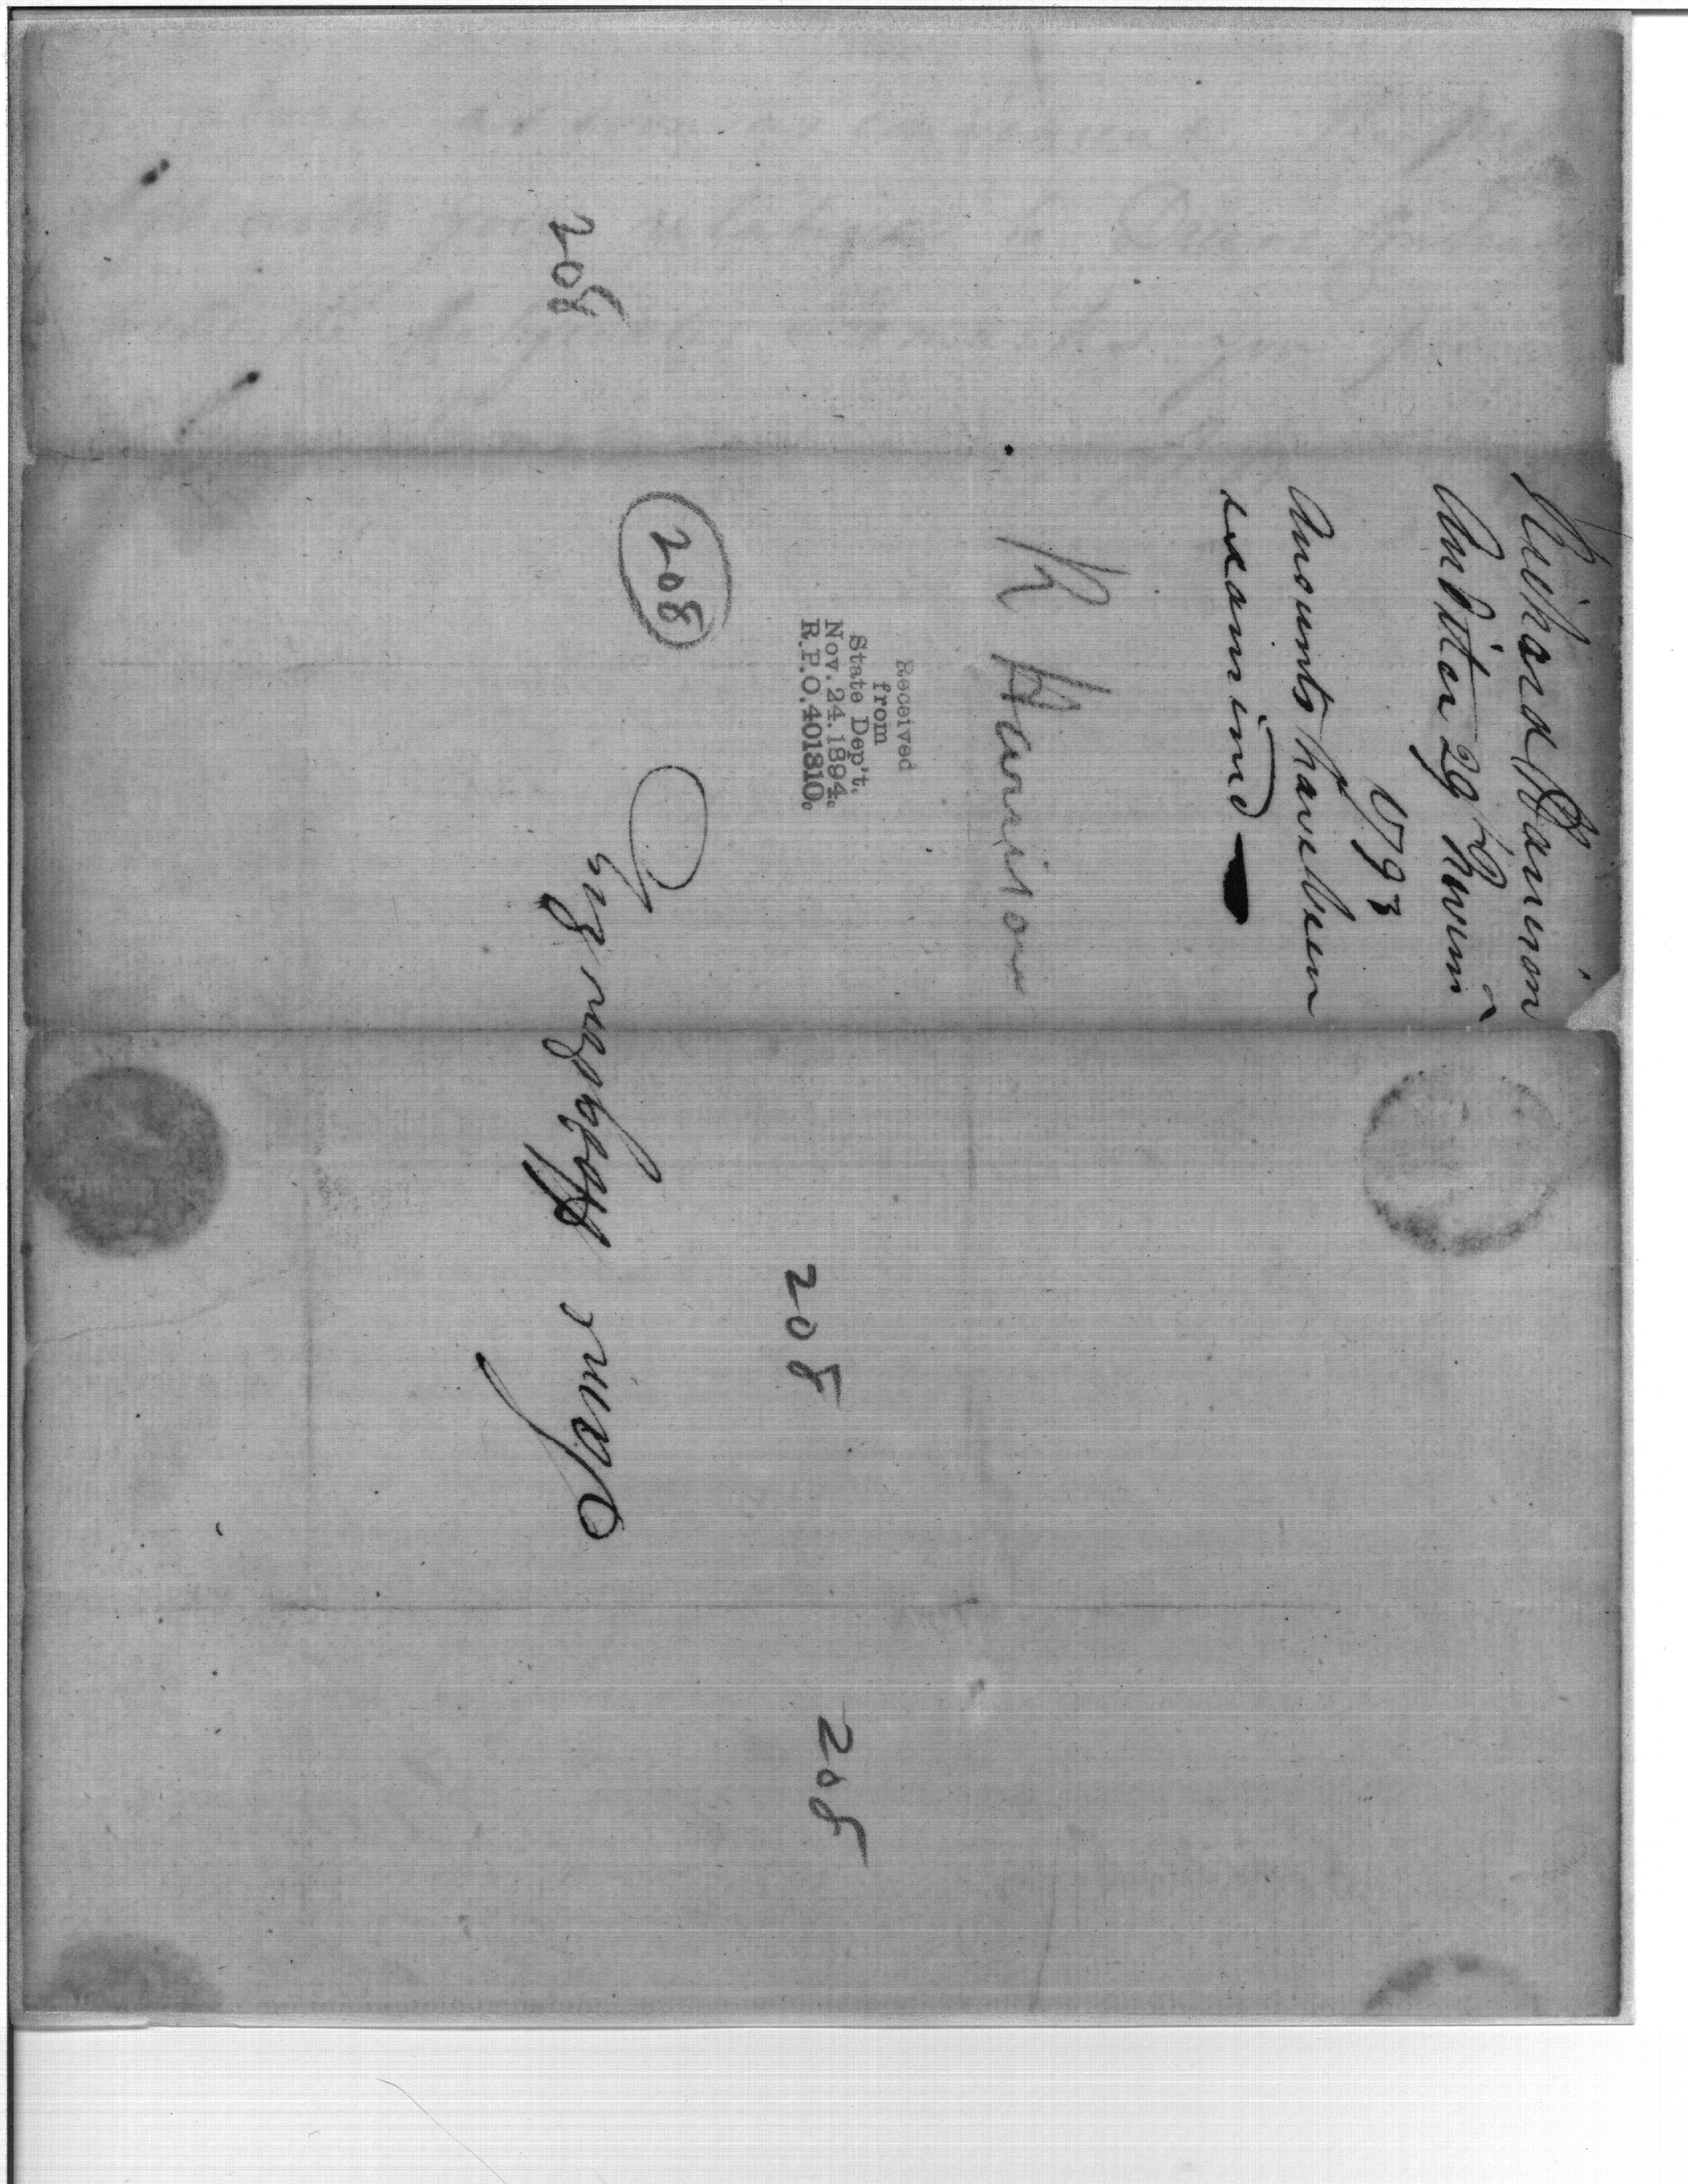 Richard Harrison
Auditor 29th Novem
1793
Accounts have been
examined
R Harrison
Received
from
State Dep't.
Nov. 24. 1894.
R.P.O. 401310.
208
208
208
208
Saml Hodgdon Esq